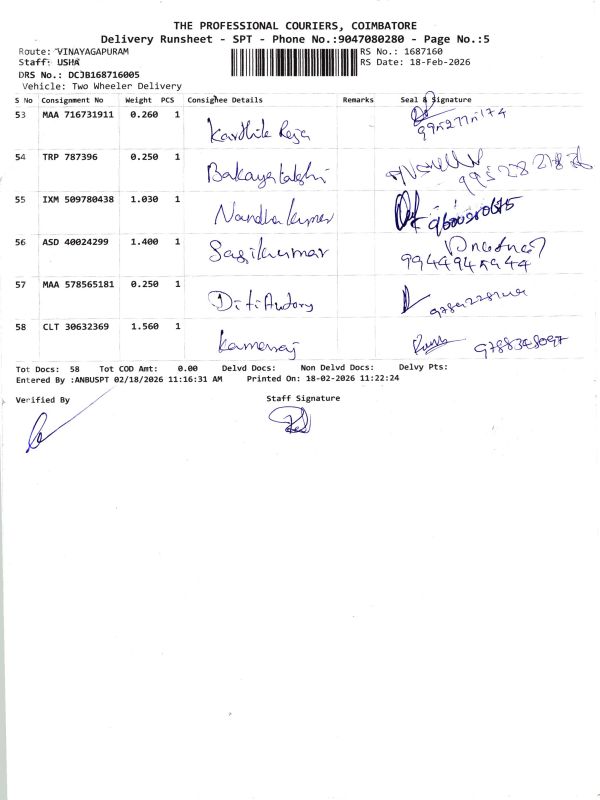 THE PROFESSIONAL COURIERS, COIMBATORE
Delivery Runsheet - SPT - Phone No.:9047080280 - Page No.:5
Route: VINAYAGAPURAM
RS No.: 1687160
Staff: USHA
RS Date: 18-Feb-2026
DRS No.: DCJB168716005
Vehicle: Two Wheeler Delivery
S No Consignment No Weight PCS Consignee Details Remarks Seal & Signature
53 MAA 716731911 0.260 1
54 TRP 787396 0.250 1
55 IXM 509780438 1.030 1 Nandha kumar
56 ASD 40024299 1.400 1 Sasikumar
9944945944
57 MAA 578565181 0.250 1
58 CLT 30632369 1.560 1 kamaraj 9788348097
Tot Docs: 58 Tot COD Amt: 0.00 Delvd Docs: Non Delvd Docs: Delvy Pts:
Entered By :ANBUSPT 02/18/2026 11:16:31 AM Printed On: 18-02-2026 11:22:24
Verified By Staff Signature